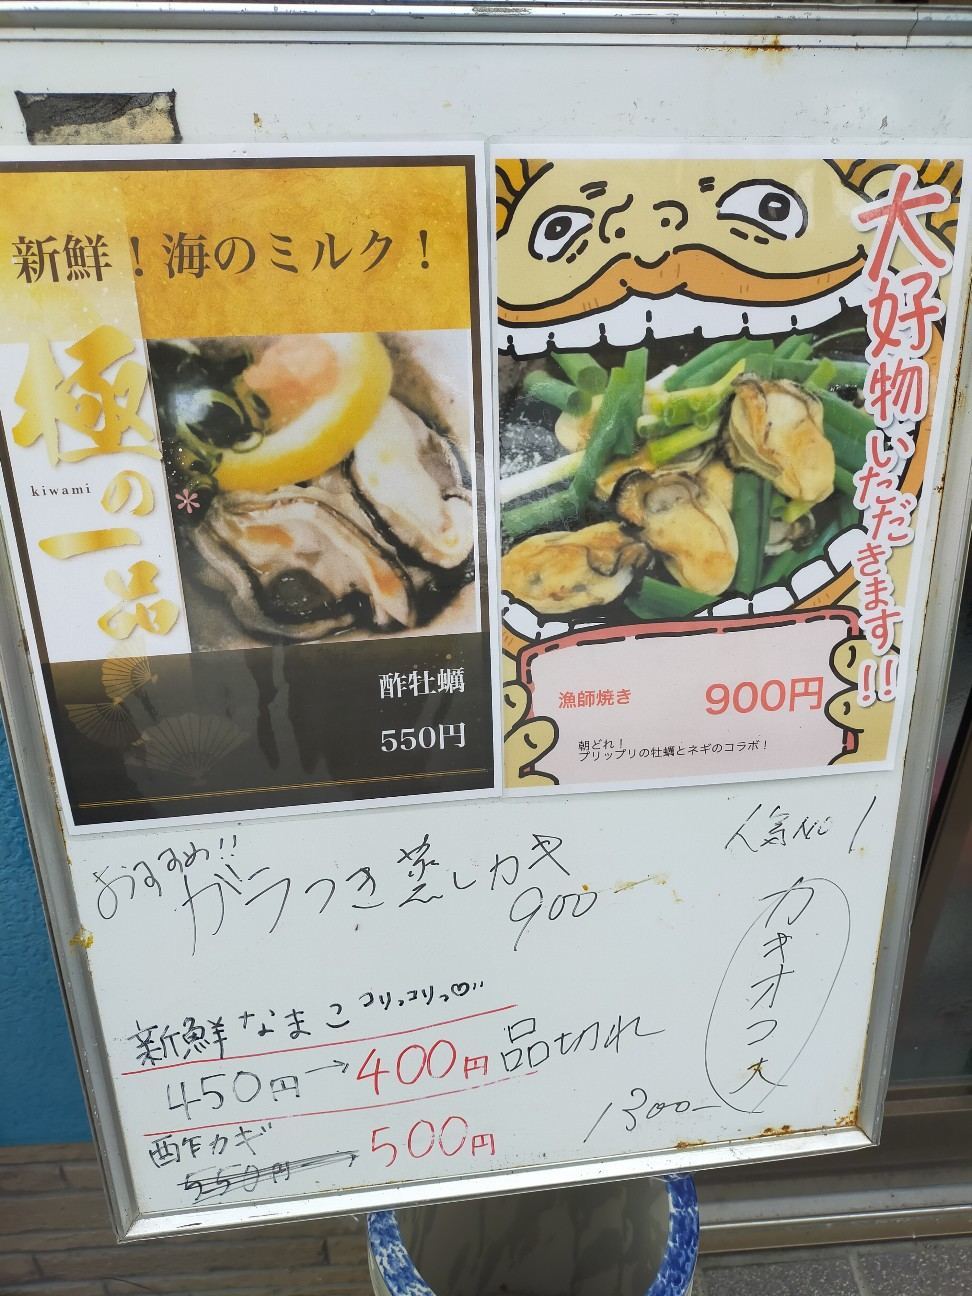 新鮮！海のミルク！
極の一品
kiwami
酢牡蠣
550円
大好物いただきます!!
漁師焼き
900円
朝どれ！
プリップリの牡蠣とネギのコラボ！
おすすめ!!
ガラつき蒸しカキ
900
人気No 1
カキオコ大
1300-
新鮮なまこコリっコリっ♡
450円→400円 品切れ
酢カギ
550円→500円